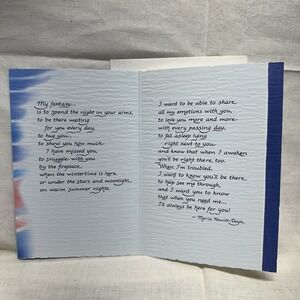 My fantasy...
is to spend the night in your arms,
to be there waiting
for you every day,
to hug you...
to show you how much
I have missed you,
to snuggle with you
by the fireplace,
when the wintertime is here,
or under the stars and moonlight,
on warm summer nights.
I want to be able to share
all my emotions with you,
to love you more and more
with every passing day,
to fall asleep lying
right next to you
and know that when I awaken
you'll be right there, too.
When I'm troubled,
I want to know you'll be there
to help see me through,
and I want you to know
that when you need me...
I'll always be here for you!
— Maria Hewitt-Doyle